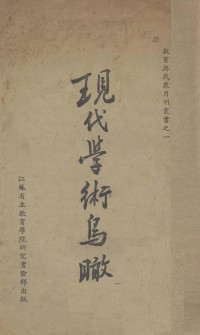 教育與民衆月刊叢書之一
現代學術鳥瞰
江蘇省立教育學院研究實驗部出版